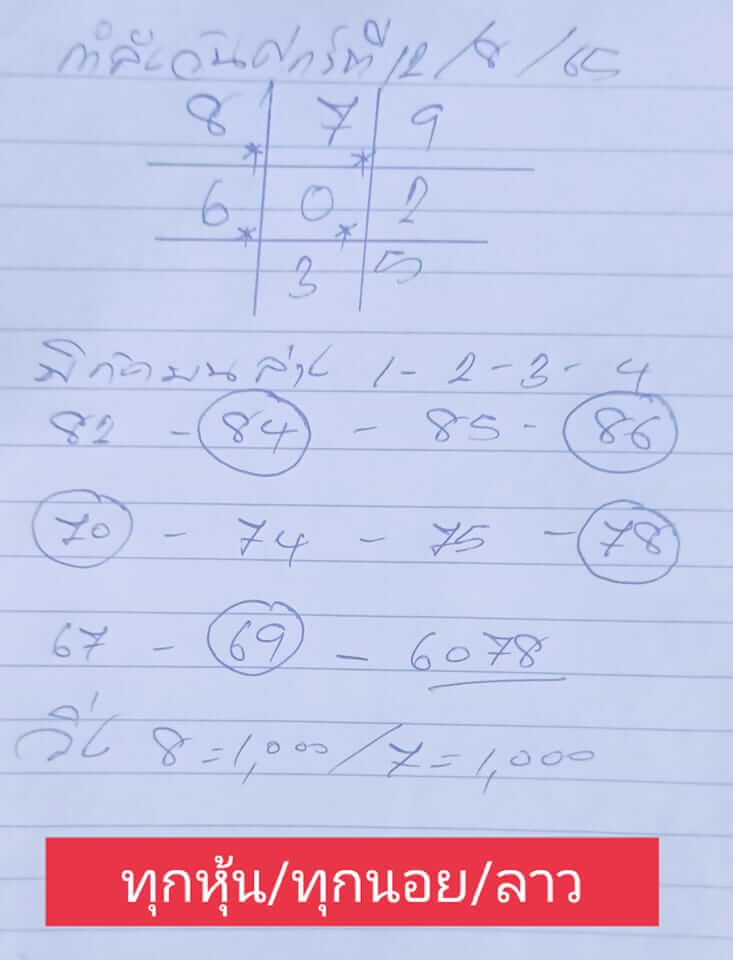 กำลังวันศุกร์ที่ 12/8/65
8 7 9
* *
6 0 2
* *
3 5
พิกัดบนล่าง 1-2-3-4
82 - 84 - 85 - 86
70 - 74 - 75 - 78
67 - 69 - 6078
วิ่ง 8=1,000/7=1,000
ทุกหุ้น/ทุกนอย/ลาว